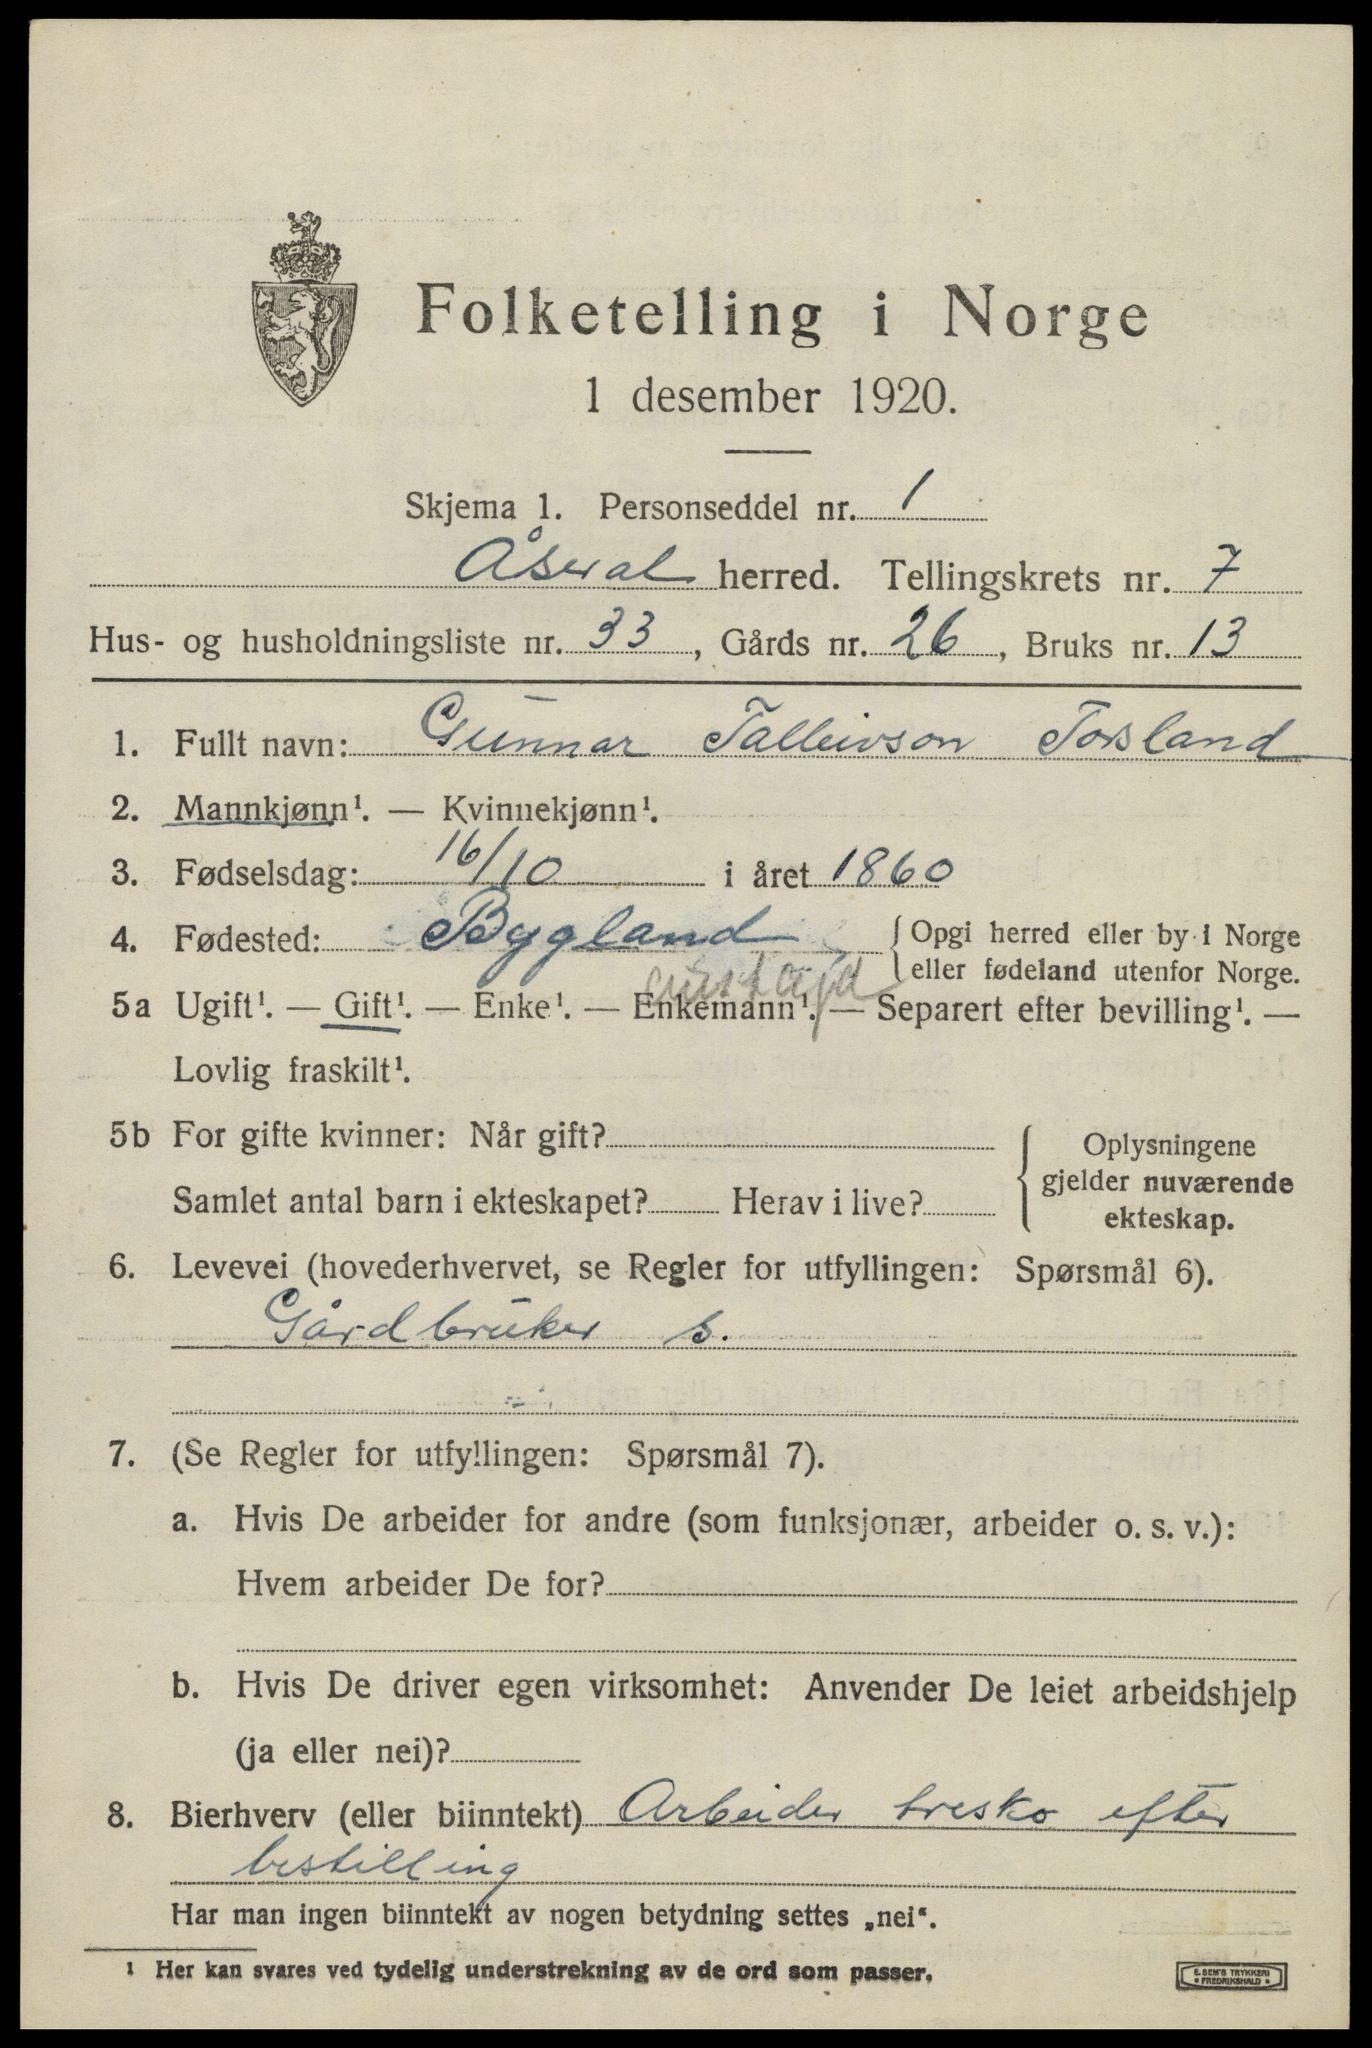 Folketelling i Norge
1 desember 1920.
Skjema 1. Personseddel nr. 1
Åseral herred. Tellingskrets nr. 7
Hus- og husholdningsliste nr. 33, Gårds nr. 26, Bruks nr. 13
1. Fullt navn: Gunnar Talleivson Torsland
2. Mannkjønn¹. — Kvinnekjønn¹.
3. Fødselsdag: 16/10 i året 1860
4. Fødested: Bygland { Opgi herred eller by i Norge
eller fødeland utenfor Norge.
5a Ugift¹. — Gift¹. — Enke¹. — Enkemann¹. — Separert efter bevilling¹. —
Lovlig fraskilt¹.
5b For gifte kvinner: Når gift?
Samlet antal barn i ekteskapet? Herav i live?
{ Oplysningene
gjelder nuværende
ekteskap.
6. Levevei (hovederhvervet, se Regler for utfyllingen: Spørsmål 6).
Gårdbruker s.
7. (Se Regler for utfyllingen: Spørsmål 7).
a. Hvis De arbeider for andre (som funksjonær, arbeider o. s. v.):
Hvem arbeider De for?
b. Hvis De driver egen virksomhet: Anvender De leiet arbeidshjelp
(ja eller nei)?
8. Bierhverv (eller biinntekt) Arbeider tresko efter
bestilling
Har man ingen biinntekt av nogen betydning settes „nei“.
¹ Her kan svares ved tydelig understrekning av de ord som passer.
E. SEM'S TRYKKERI
• FREDRIKSHALD •